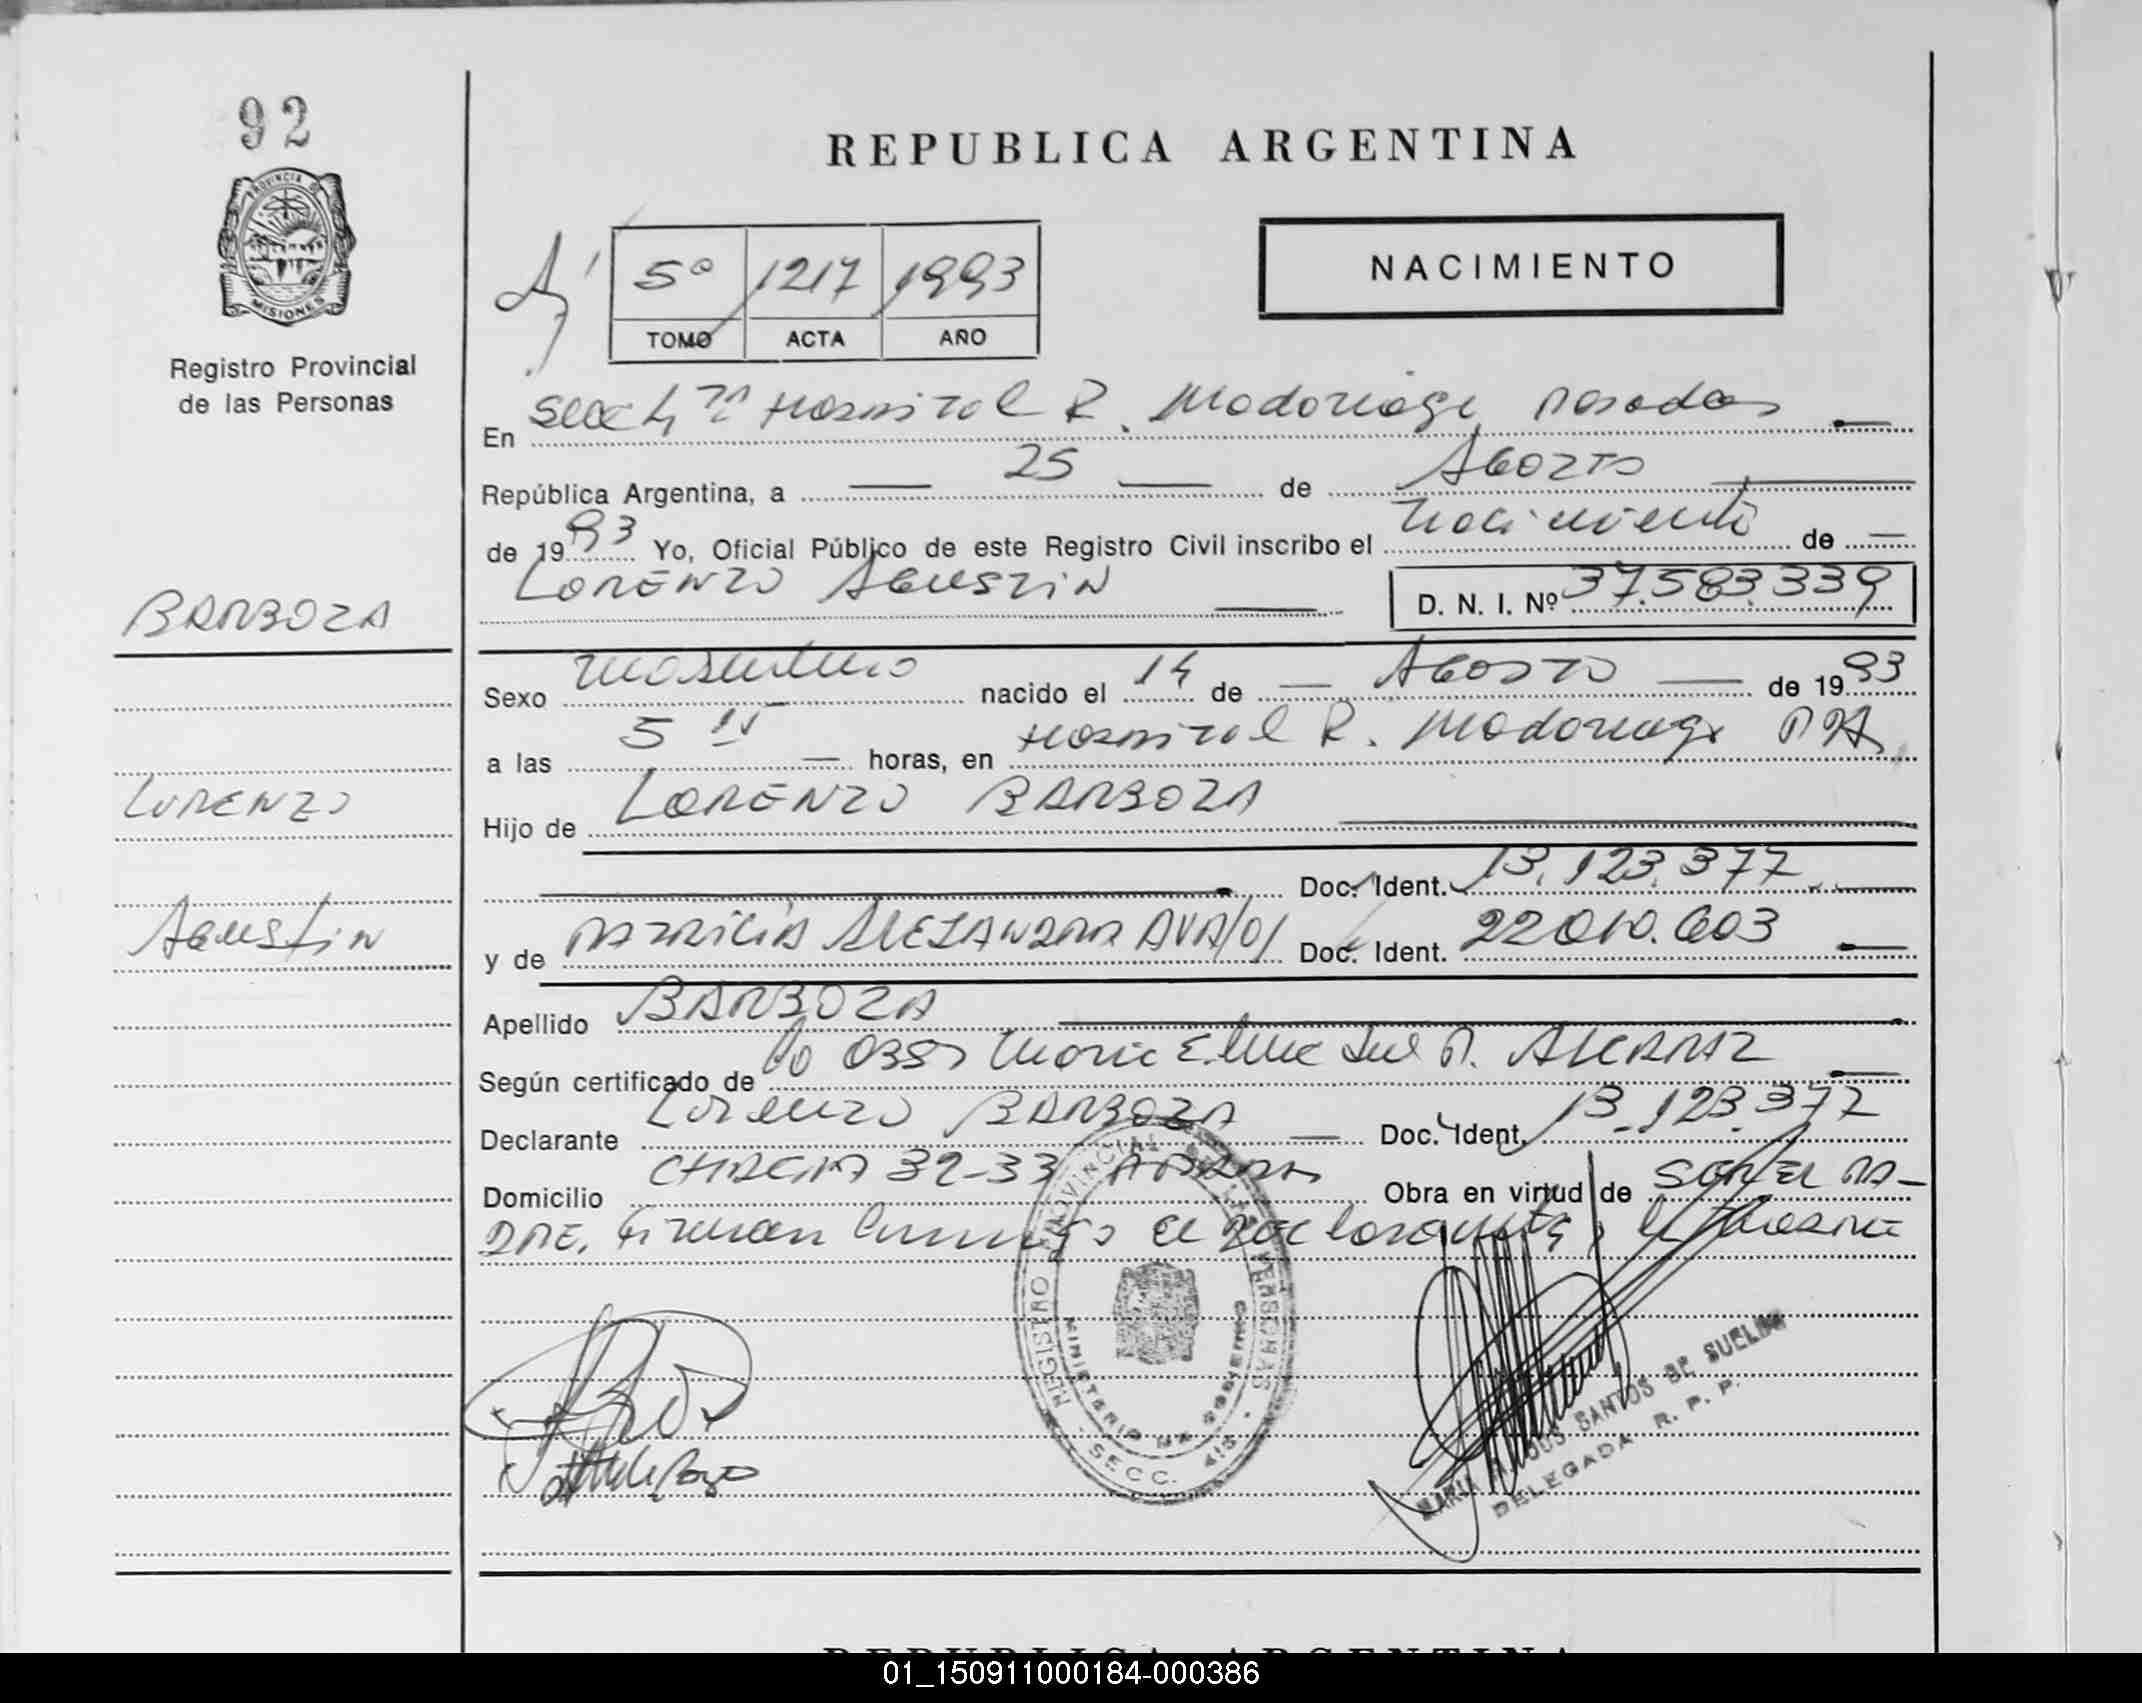 92
PROVINCIA DE
MISIONES
Registro Provincial
de las Personas
REPUBLICA ARGENTINA
5º 1217 1993
TOMO ACTA AÑO
NACIMIENTO
En Secc 4ª Hospital R. Madariaga Posadas
República Argentina, a 25 de Agosto
de 1993 Yo, Oficial Público de este Registro Civil inscribo el nacimiento de
LORENZO AGUSTIN D. N. I. Nº 37.583.339
BARBOZA
Sexo masculino nacido el 14 de AGOSTO de 1993
a las 5 horas, en Hospital R. Madariaga
LORENZO
Hijo de LORENZO BARBOZA
Doc. Ident. 13.123.377
AGUSTIN
y de PATRICIA ALEJANDRA Doc. Ident. 22.010.603
Apellido BARBOZA
Según certificado de Maria E. ALCARAZ
Declarante Lorenzo BARBOZA Doc. Ident. 13.123.377
Domicilio CHACRA 32-33 Obra en virtud de SER EL PA-
DRE. Firman conmigo el declarante,
REGISTRO PROVINCIAL DE LAS PERSONAS
MINISTERIO DE GOBIERNO
SECC.
MARIA SANTOS DE SUELDO
DELEGADA R. P. P.
REPUBLICA ARGENTINA
01_150911000184-000386